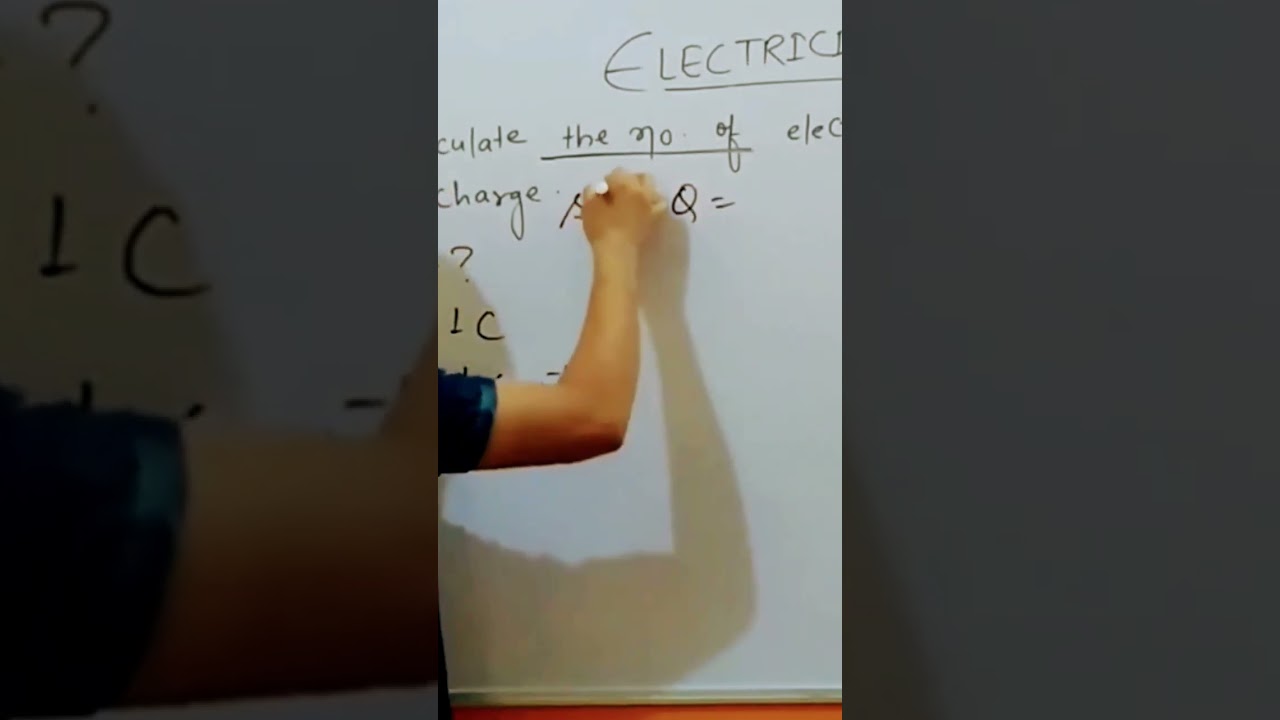 ELECTRICI
culate the no. of elec
charge. Q =
?
1 C